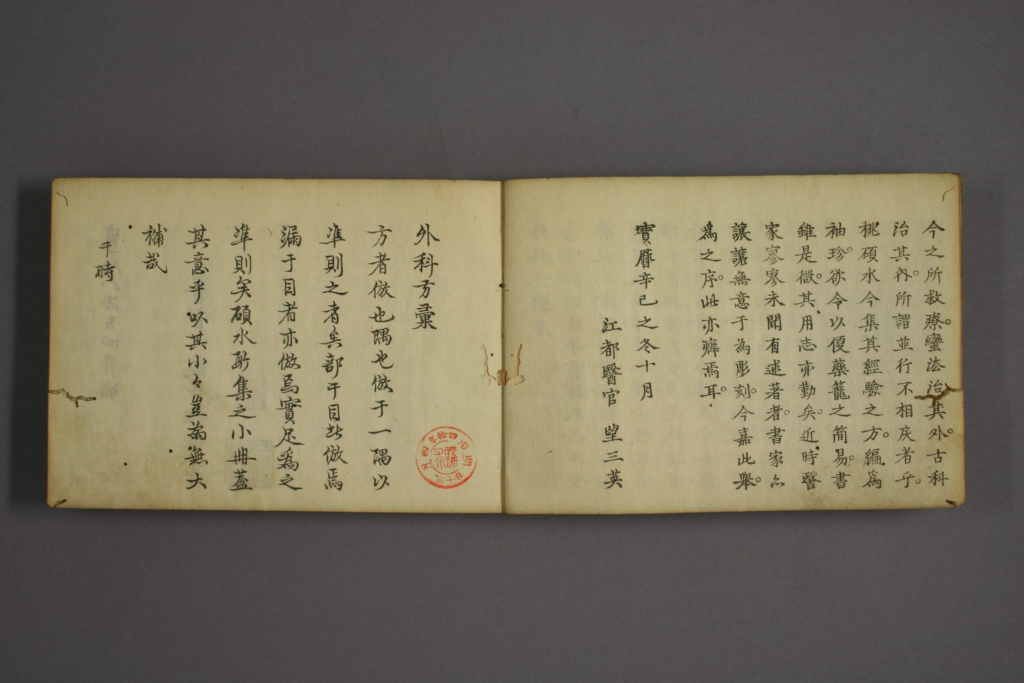 今之所救療。蠻法治其外。古科
治其內。所謂並行不相戾者乎。
桃碩水今集其經驗之方。編為
袖珍。欲令以便藥籠之簡易。書
雖是微。其用志亦勤矣。近時醫
家寥寥未聞有述著者。書家亦
讓讓無意于為彫刻。今嘉此舉。
為之序。此亦癖焉耳。
寶曆辛巳之冬十月
江都醫官 望三英
外科方彙
方者倣也隅也倣于一隅以
準則之者矣部干目此倣焉
漏于目者亦倣焉實足為之
準則矣碩水所集之小冊蓋
其意乎以其小々豈為無大
補哉
干時